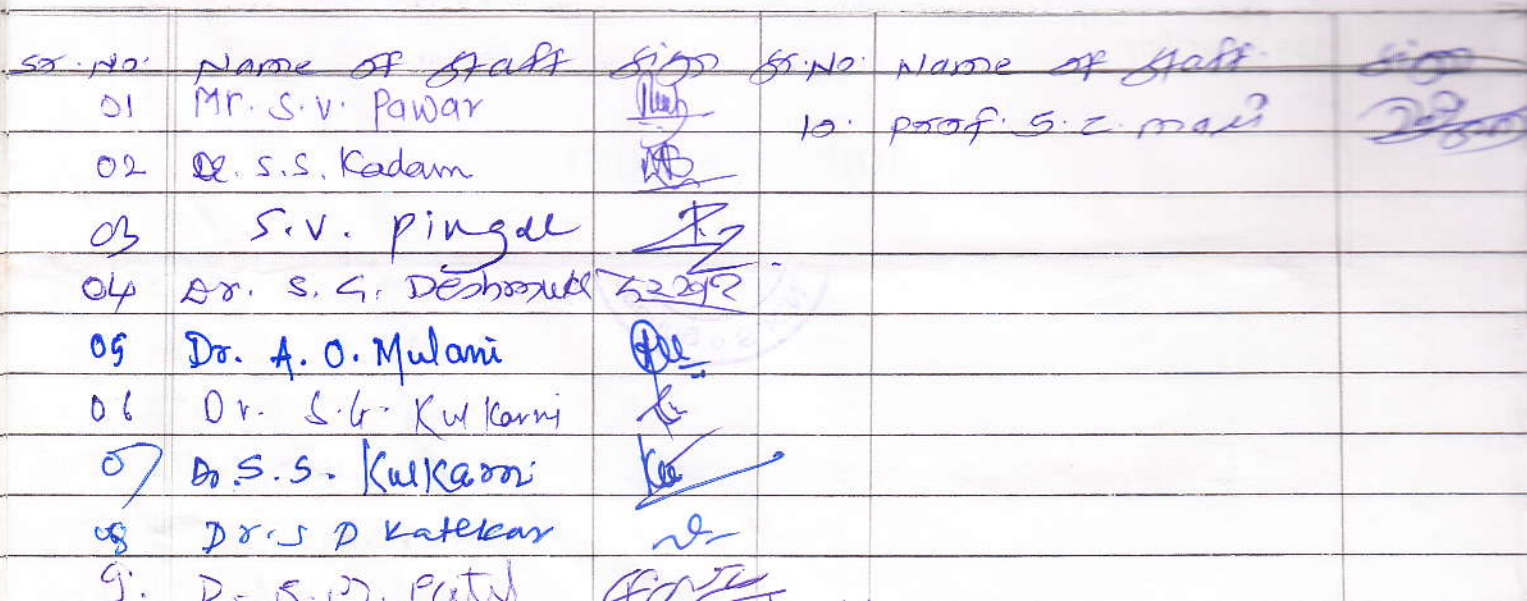 Sr. No. Name of Staff Sign Sr. No. Name of Staff Sign
01 Mr. S. V. Pawar
10. Prof. S. Z. Mali
02 S.S. Kadam
03 S.V. Pingale
04 Dr. S. G. Deshmukh
05 Dr. A. O. Mulani
06 Dr. S. G. Kulkarni
07 Dr S.S. Kulkarni
08 Dr. S D Katekar
9. Patil